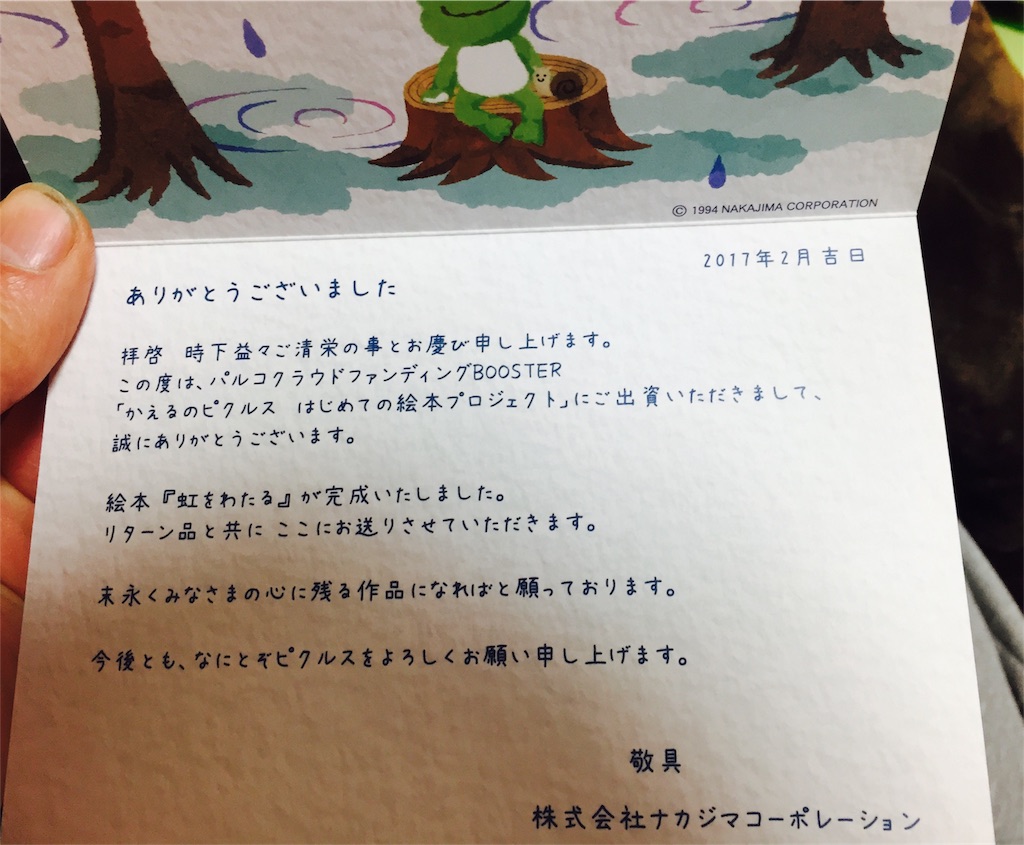 © 1994 NAKAJIMA CORPORATION
2017年2月吉日
ありがとうございました
拝啓　時下益々ご清栄の事とお慶び申し上げます。
この度は、パルコクラウドファンディングBOOSTER
「かえるのピクルス　はじめての絵本プロジェクト」にご出資いただきまして、
誠にありがとうございます。
絵本『虹をわたる』が完成いたしました。
リターン品と共に ここにお送りさせていただきます。
末永くみなさまの心に残る作品になればと願っております。
今後とも、なにとぞピクルスをよろしくお願い申し上げます。
敬具
株式会社ナカジマコーポレーション